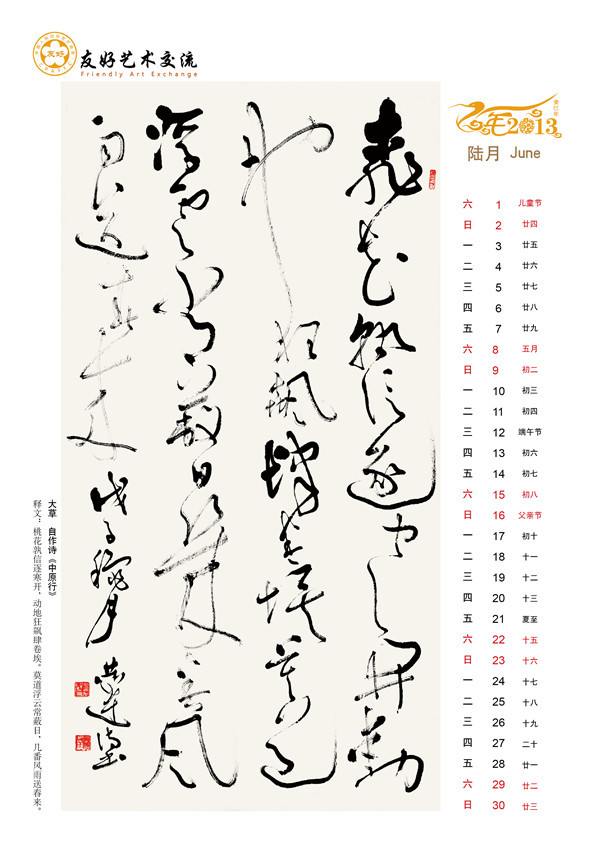 友好艺术交流
Friendly Art Exchange
2013
陆月 June
六 1 儿童节
日 2 廿四
一 3 廿五
二 4 廿六
三 5 廿七
四 6 廿八
五 7 廿九
六 8 五月
日 9 初二
一 10 初三
二 11 初四
三 12 端午节
四 13 初六
五 14 初七
六 15 初八
日 16 父亲节
一 17 初十
二 18 十一
三 19 十二
四 20 十三
五 21 夏至
六 22 十五
日 23 十六
一 24 十七
二 25 十八
三 26 十九
四 27 二十
五 28 廿一
六 29 廿二
日 30 廿三
桃花孰信逐寒开动
地狂飙肆卷埃莫道
浮云常蔽日几番风
雨送春来戊子
大草 自作诗《中原行》
释文：桃花孰信逐寒开，动地狂飙肆卷埃。莫道浮云常蔽日，几番风雨送春来。